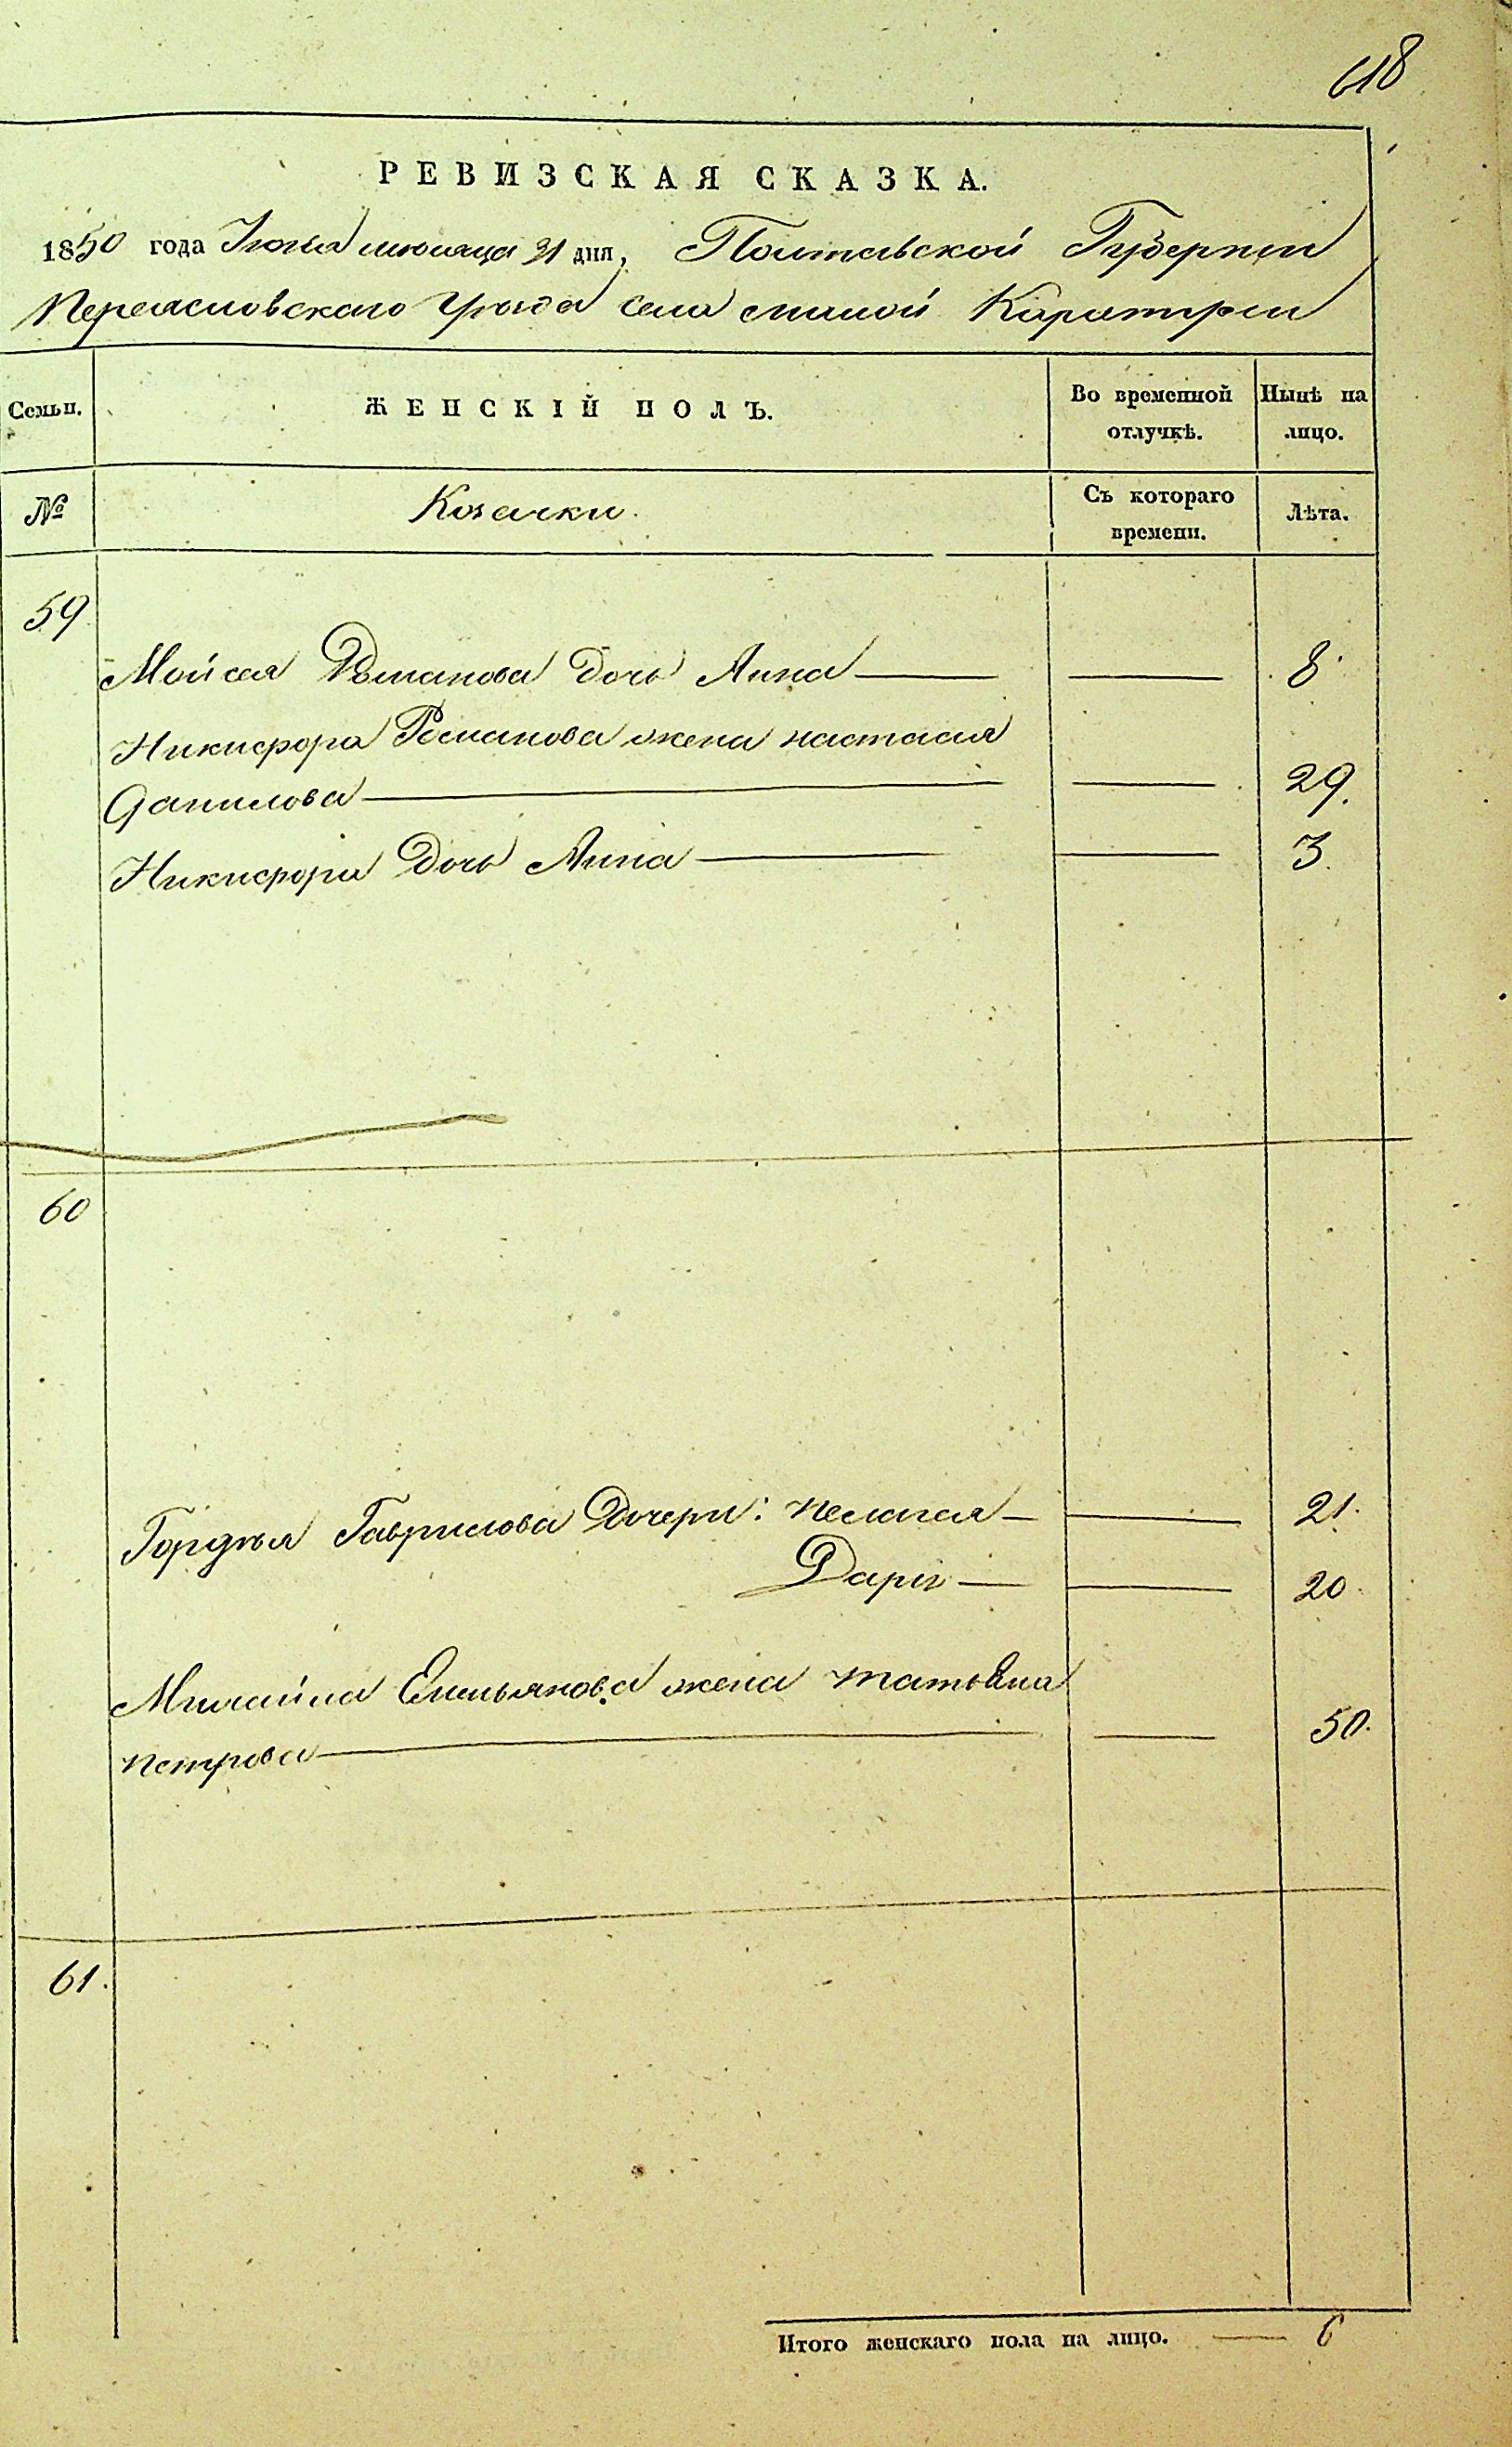 618
РЕВИЗСКАЯ СКАЗКА.
1850 года Июля месяца 31 дня, Полтавской Губернии
Переяславского Уезда Села малой Каратули
Семьи.
ЖЕНСКІЙ ПОЛЪ.
Во временной отлучкѣ.
Нынѣ на лицо.
№
Козачки.
Съ котораго времени.
Лѣта.
59
Мойсея Романова дочь Анна — — 8
Никифора Романова жена настасия
Данилова — — 29.
Никифора Дочь Анна — — 3.
60
Гордѣя Гаврилова Дочери: пелагея — — 21.
Дарія — — 20.
Михайла Емельянова жена татьяна
петрова — — 50.
61.
Итого женскаго пола на лицо. — 6